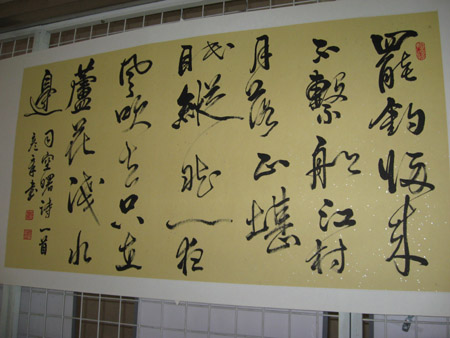 罷釣歸来
不繫船江村
月落正堪
眠縱然一夜
風吹去只在
蘆花淺水
邊
司空曙詩一首